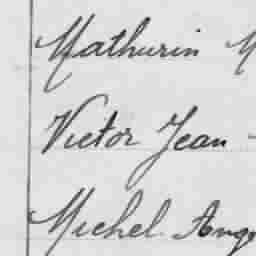 Mathurin M
Victor Jean
Michel Ange